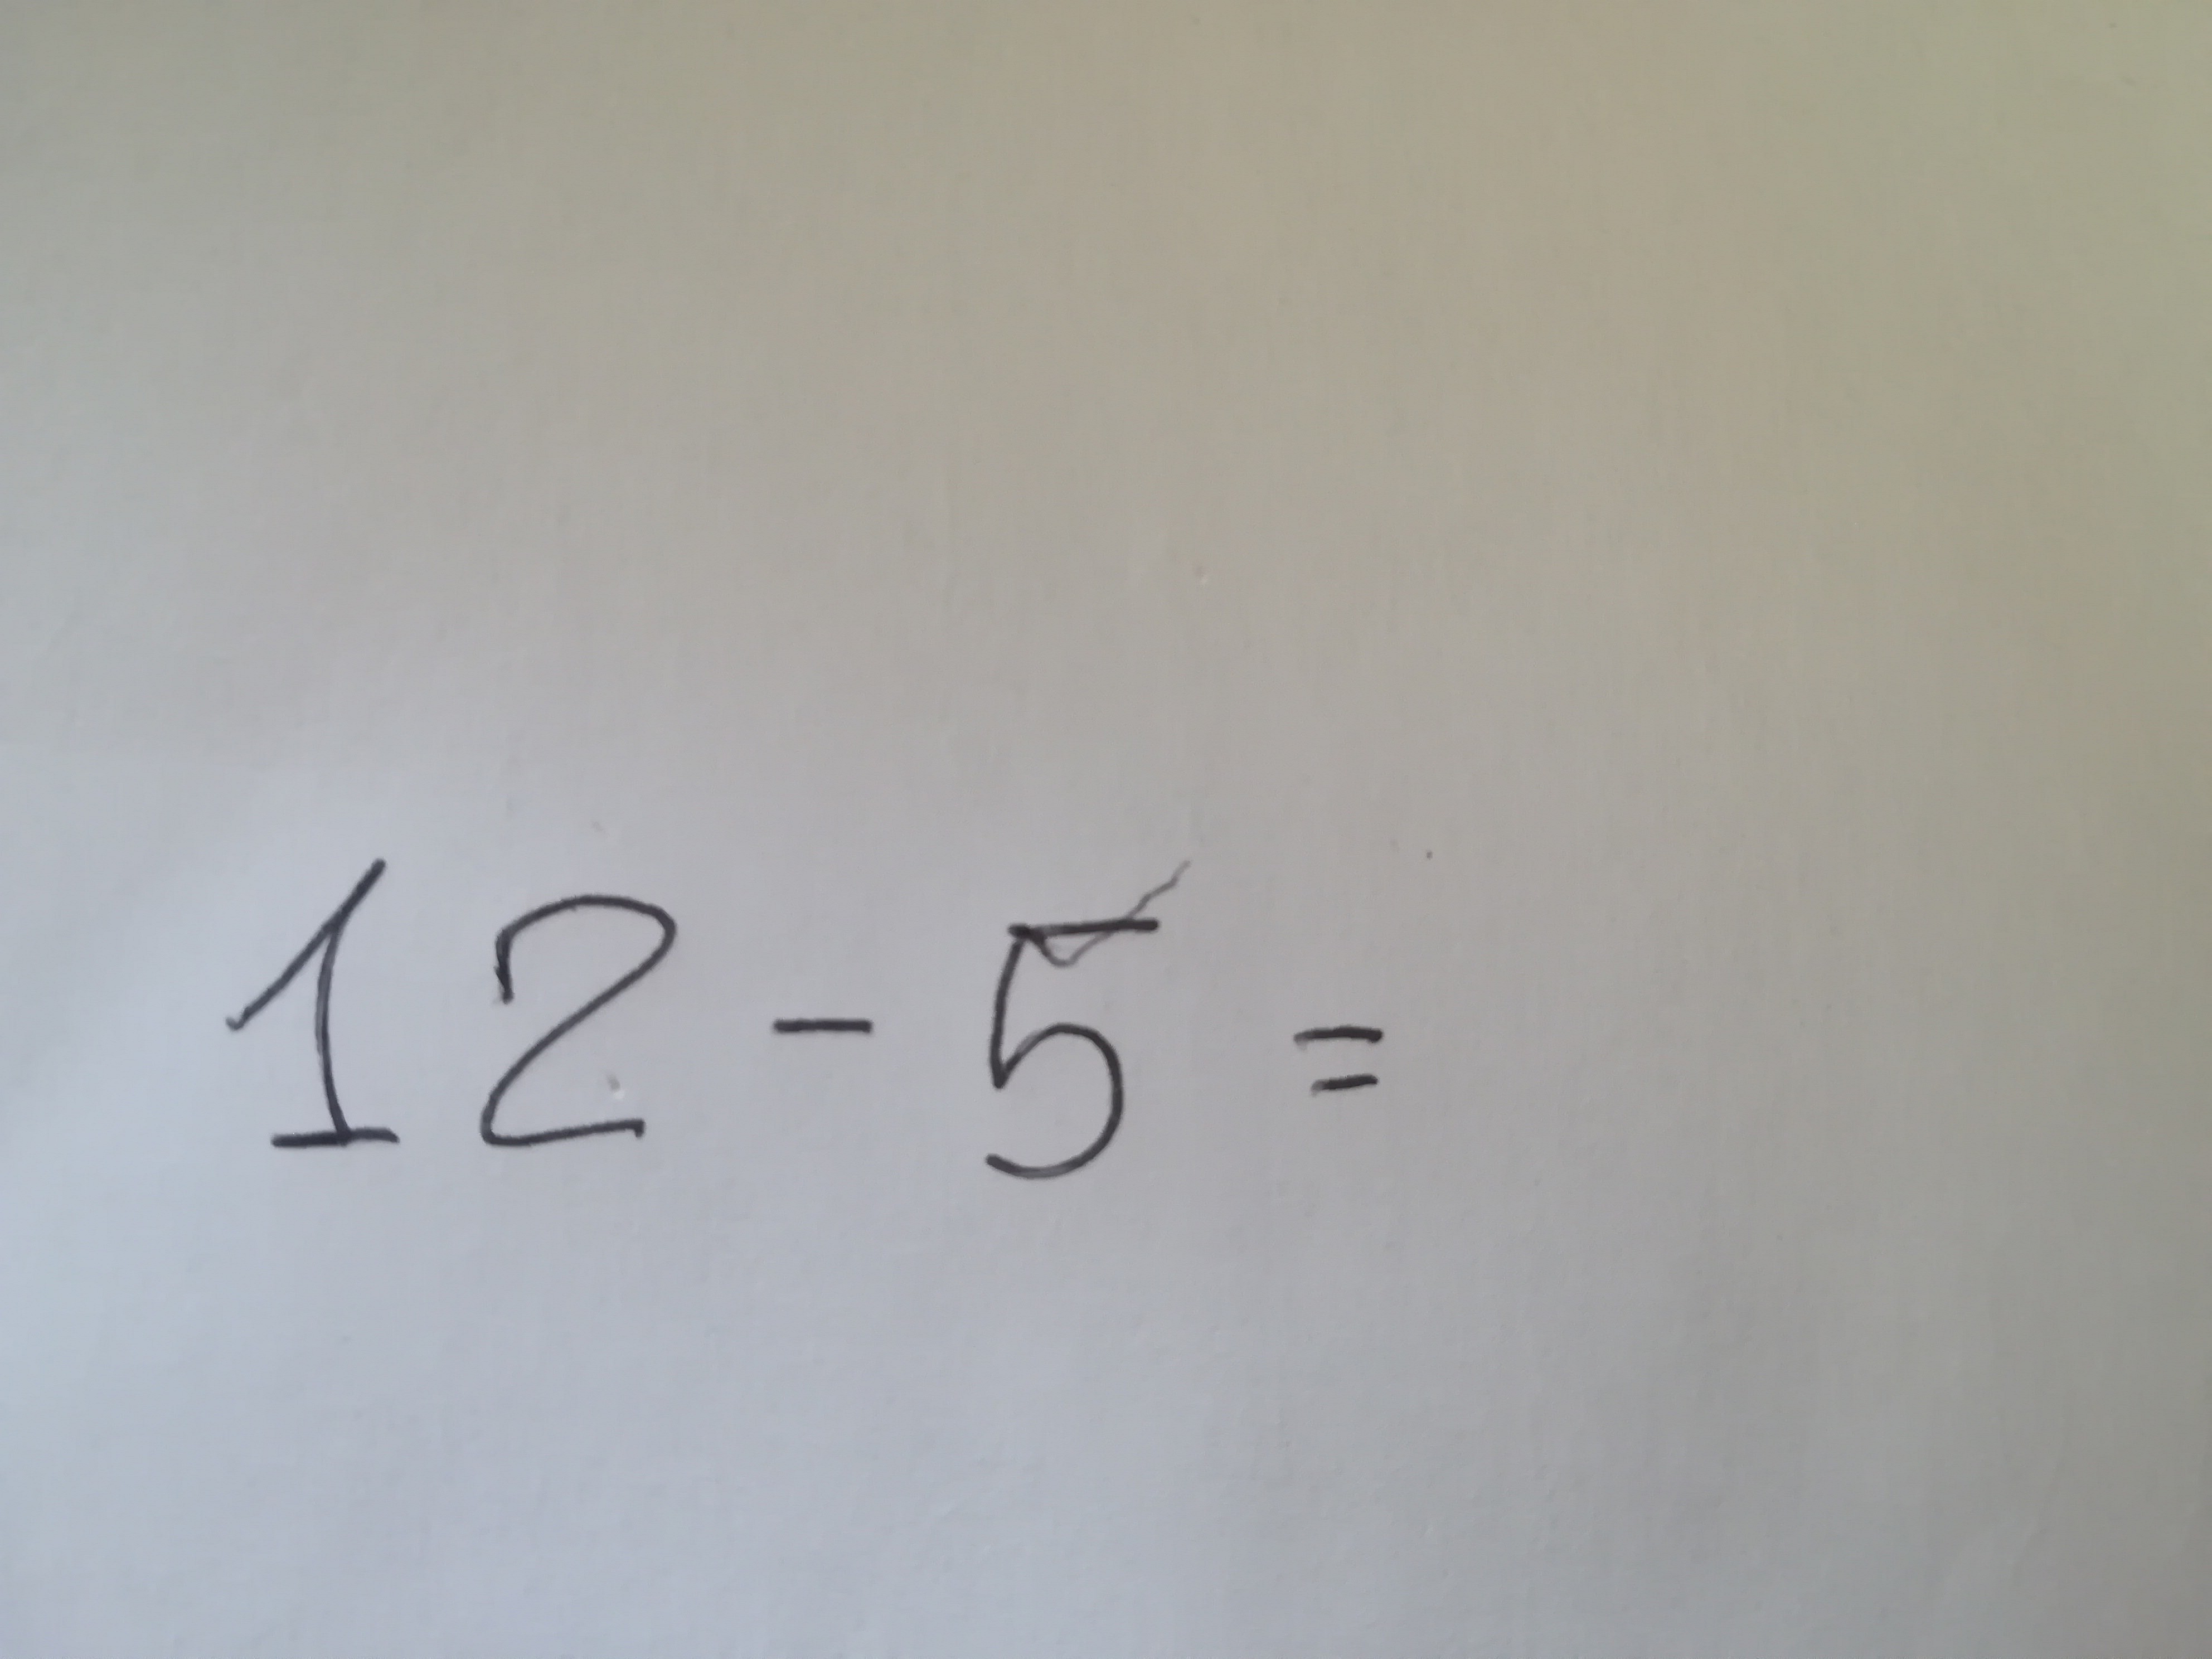 12 - 5 =